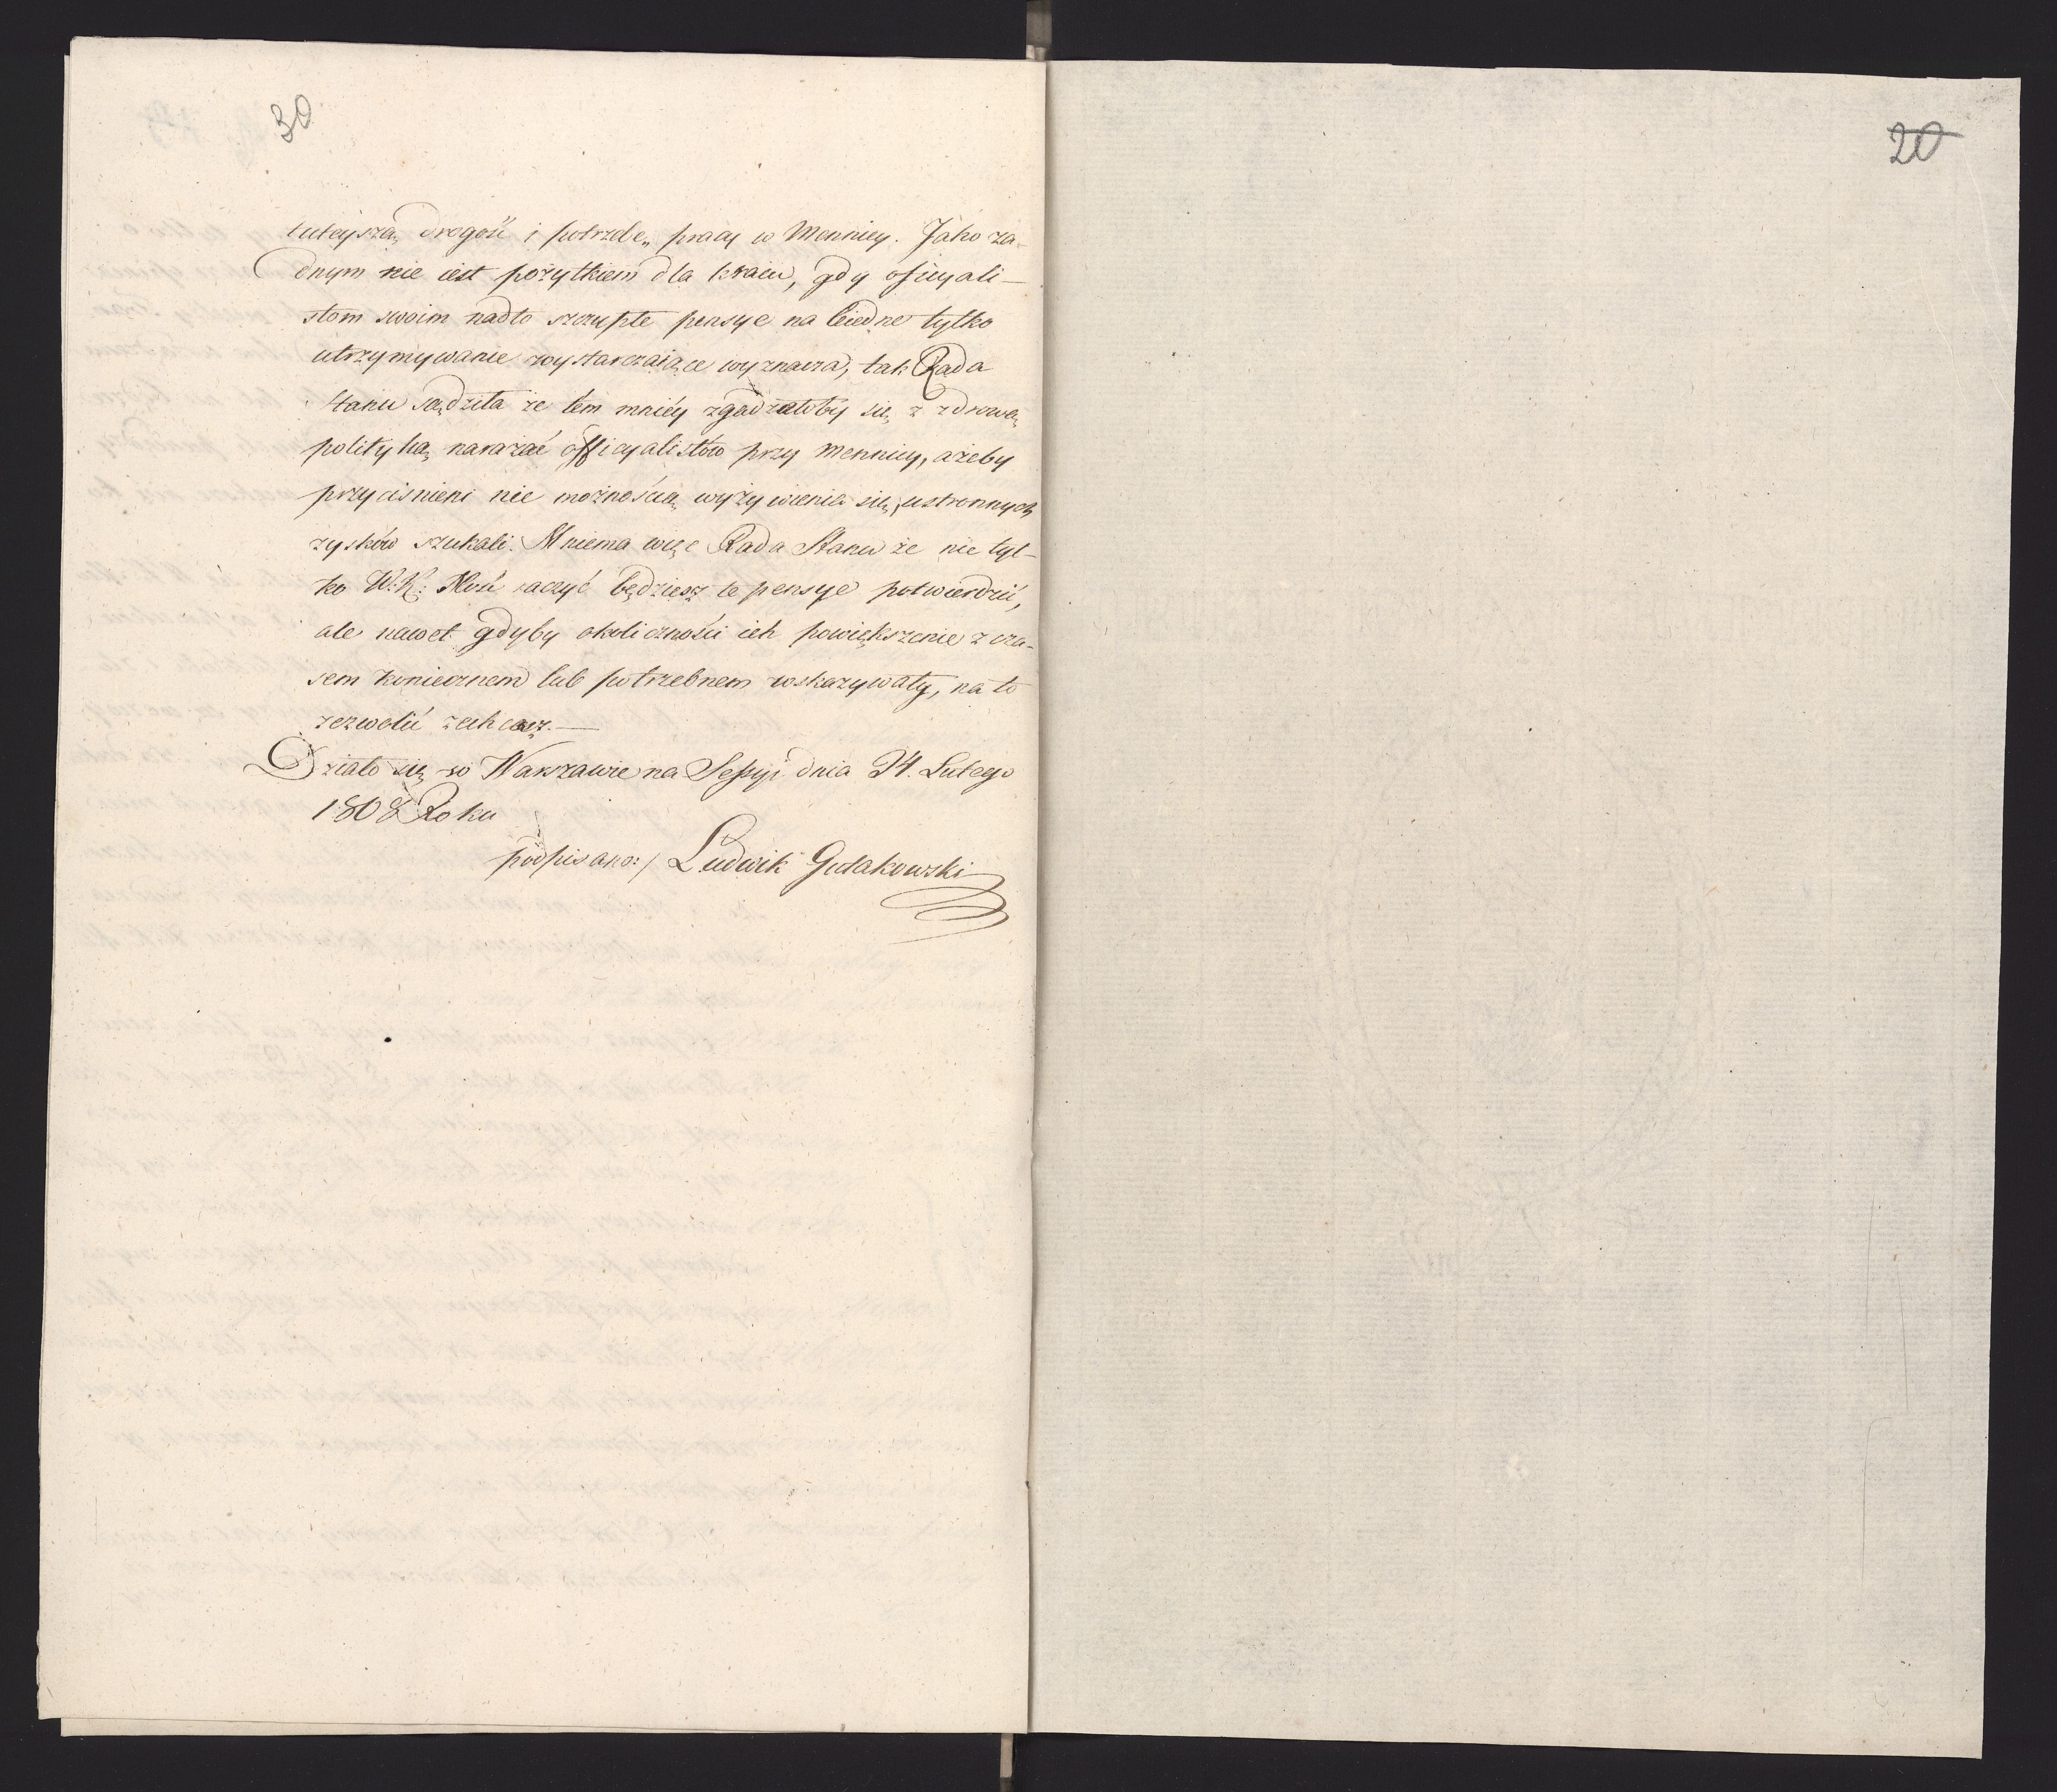 30
tuteyszą drogość i potrzebę pracy w Mennicy. Jako ża-
dnym nie iest pożytkiem dla kraiu, gdy oficyali-
stom swoim nadto szczupłe pensye na biedne tylko
utrzymywanie wystarczaiące wyznacza, tak Rada
Stanu sądziła że tem mniéy zgadzałoby się z zdrową
polityką narażać officyalistów przy Mennicy, ażeby
przyciśnieni nie możnością wyżywienia się, ustronnych
zysków szukali. Mniema więc Rada Stanu że nie tyl-
ko W: K: Mość raczyć będziesz te pensye potwierdzić,
ale nawet gdyby okoliczności ich powiększenie z cza-
sem koniecznem lub potrzebnem wskazywały, na to
zezwolić zechcesz.—
Działo się w Warszawie na Sessyi dnia 24. Lutego
1808 Roku
podpisano:/ Ludwik Gutakowski
20